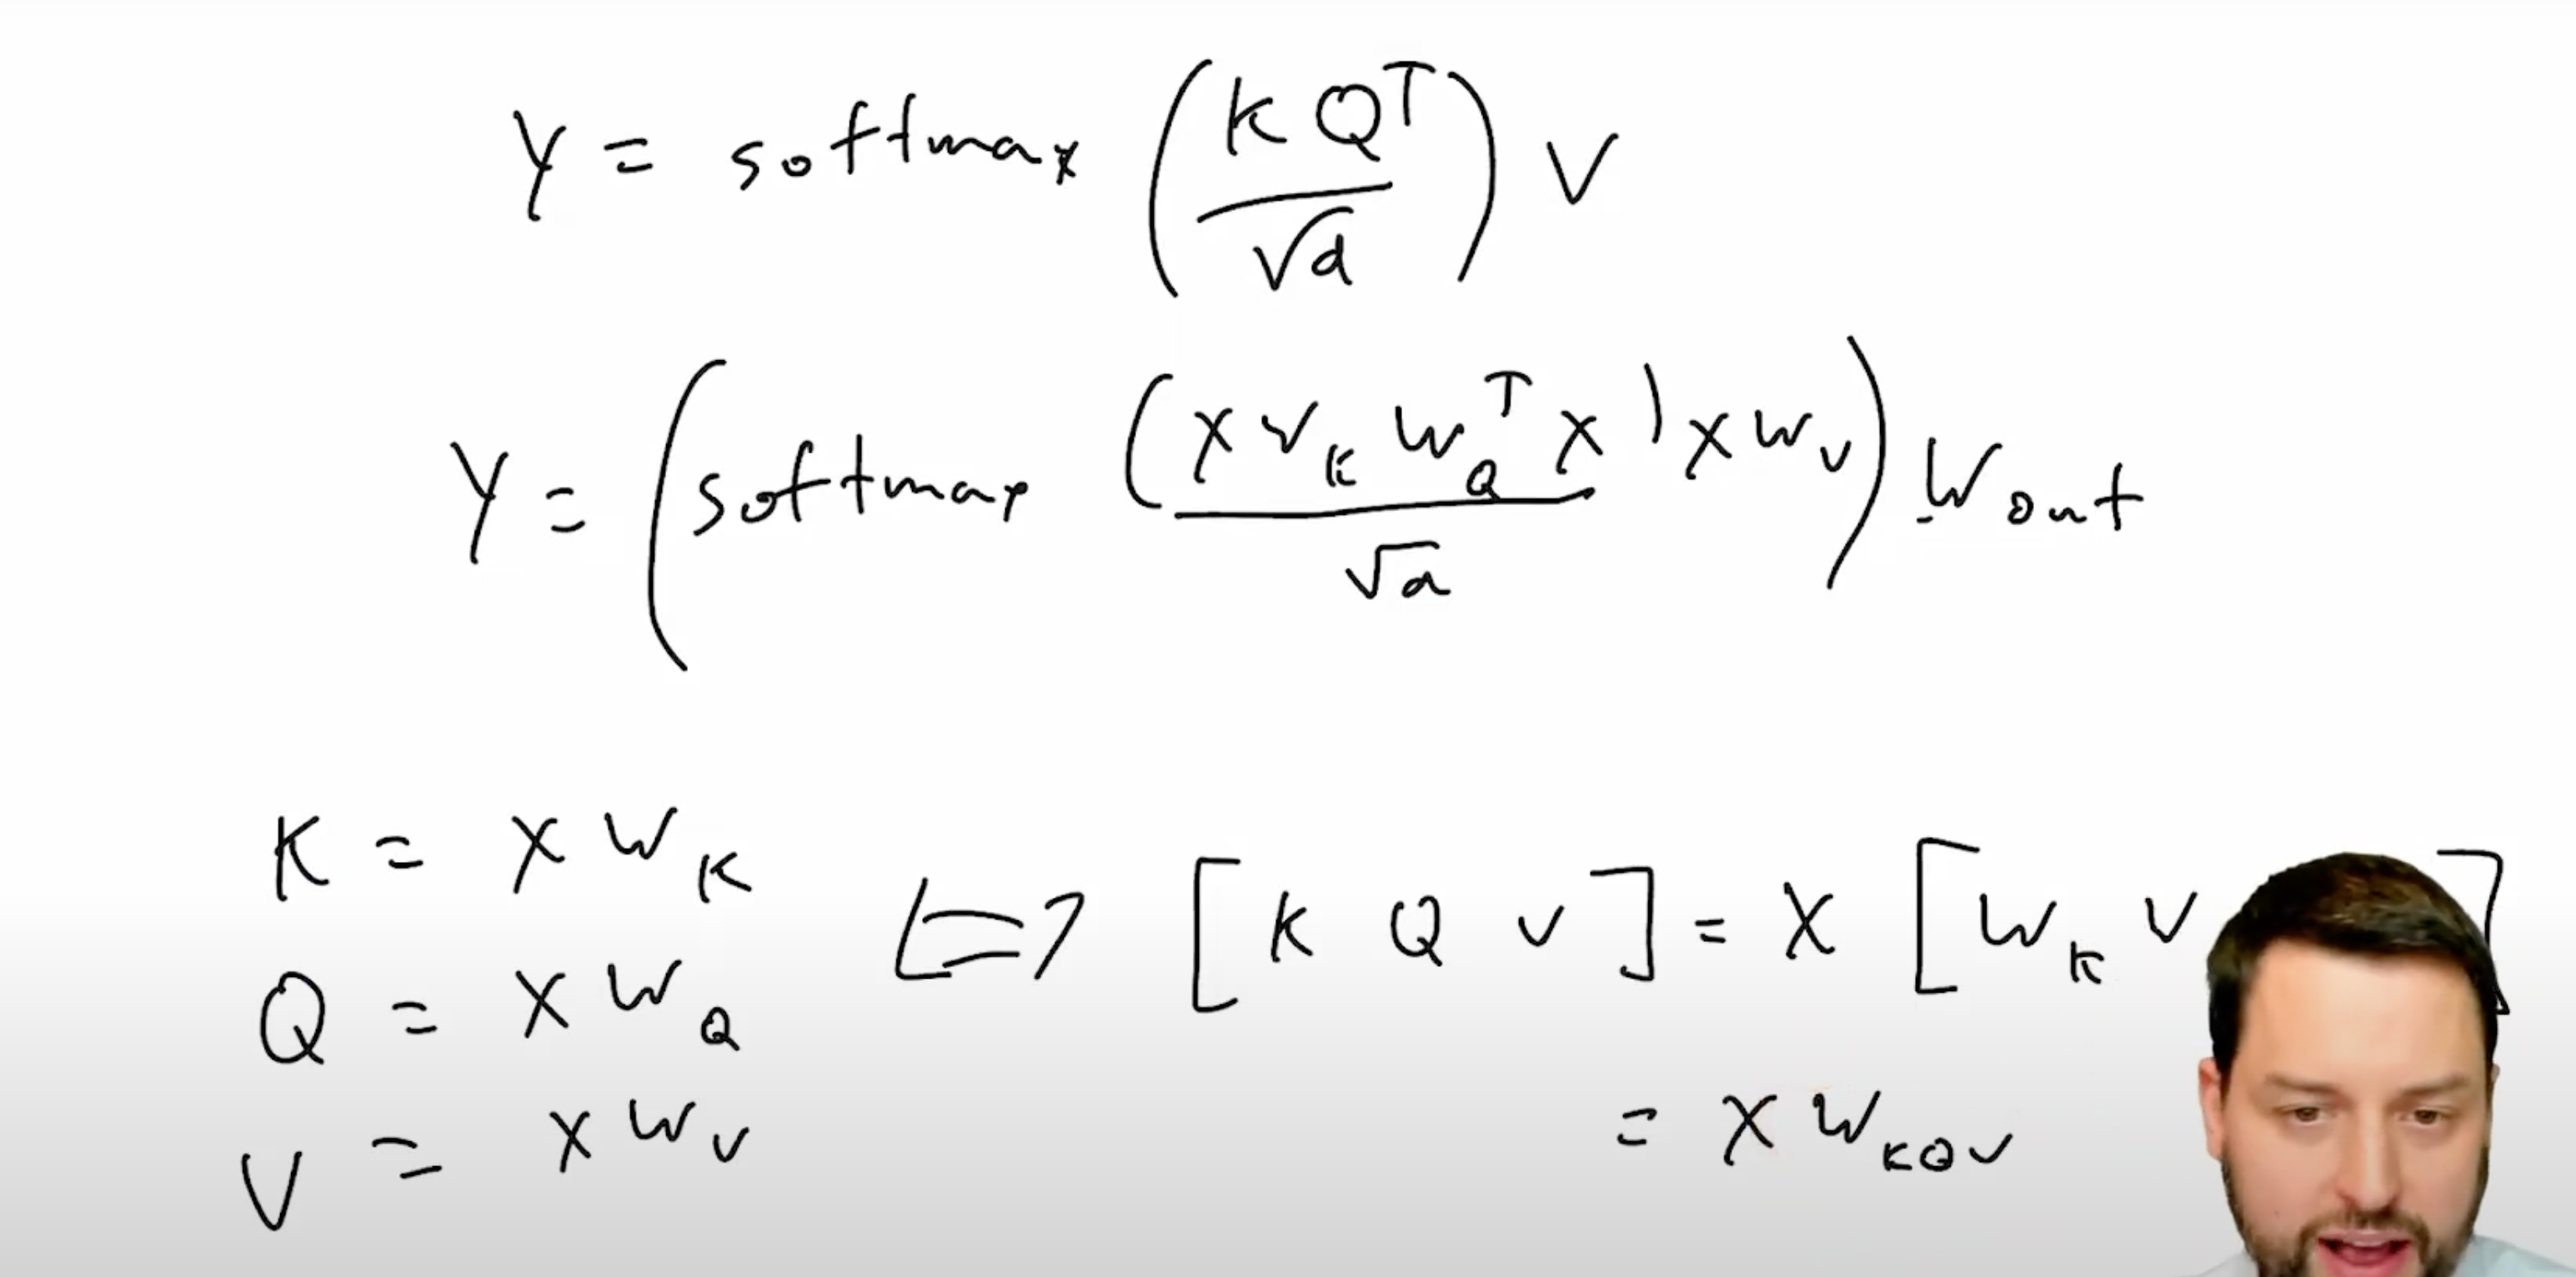 Y = softmax (K Qᵀ / √d) V
Y = (softmax (X W_K W_Qᵀ X) / √d X W_V) W_out
K = X W_K
Q = X W_Q
V = X W_V
⟺ [K Q V] = X [W_K W ]
= X W_KQV